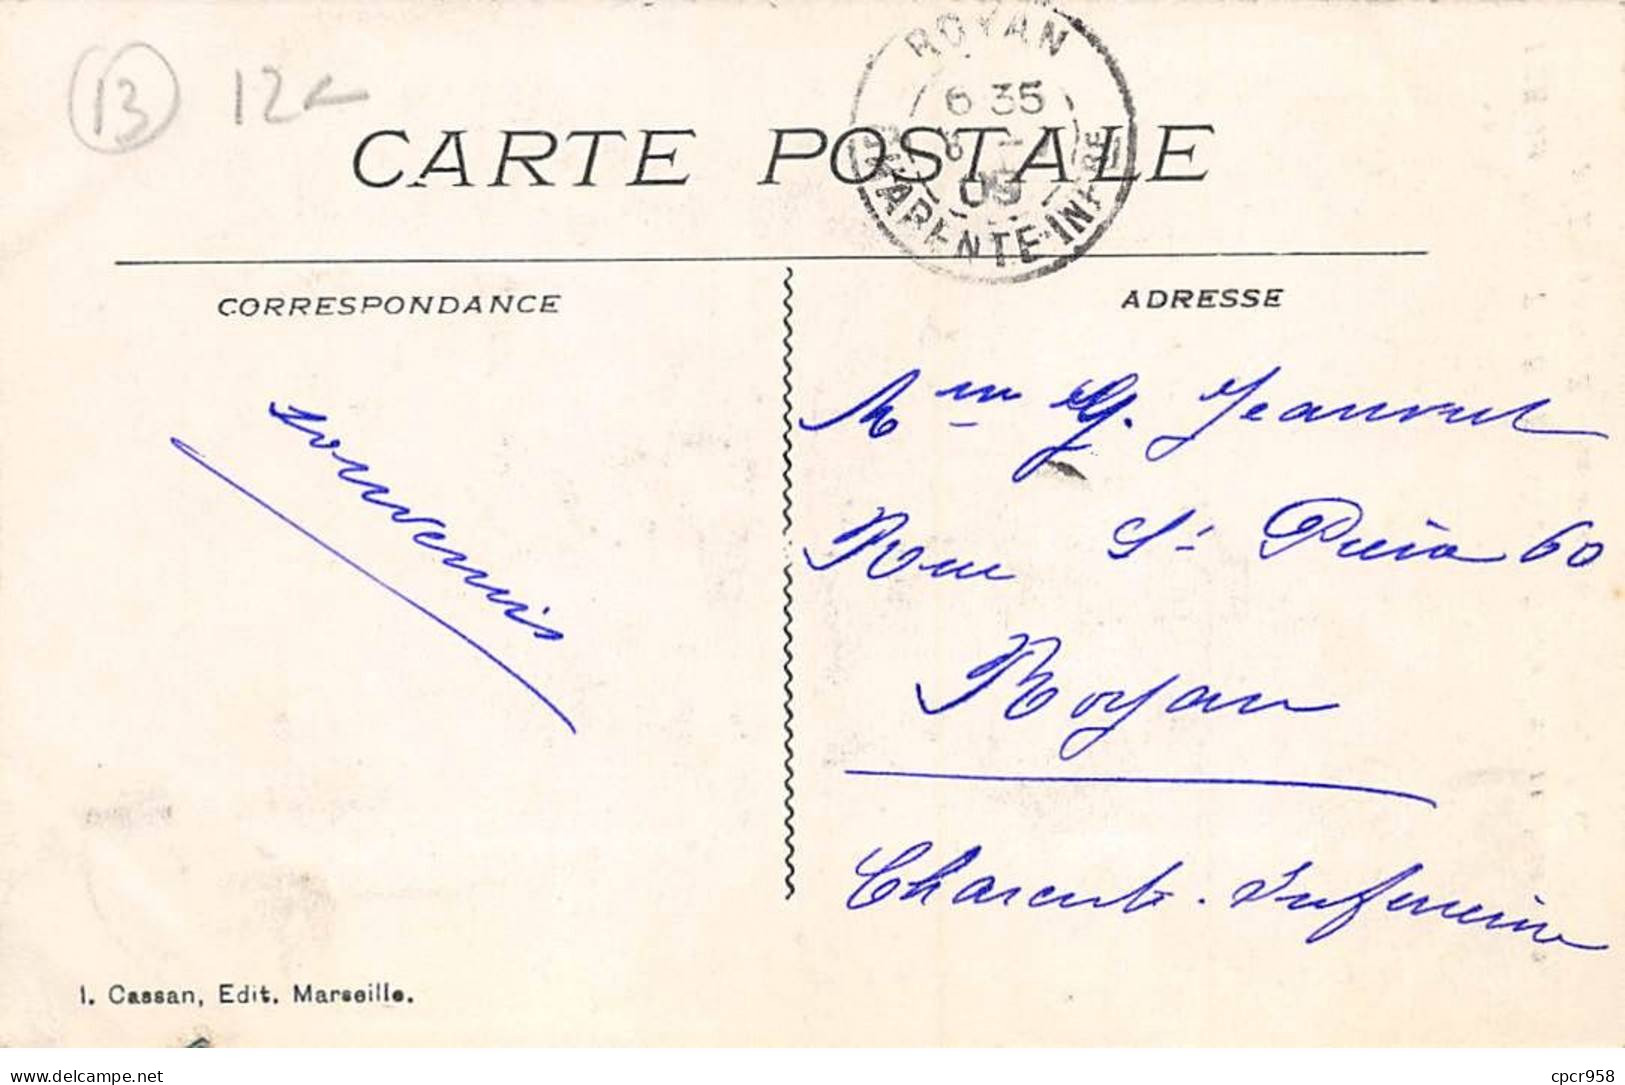 13 12
ROYAN
6 35
CHARENTE-INF RE
CARTE POSTALE
CORRESPONDANCE
ADRESSE
Mme G.
Rue St 60
Royan
Charente-Inferieure
I. Cassan, Edit. Marseille.
delcampe.net
cpcr958